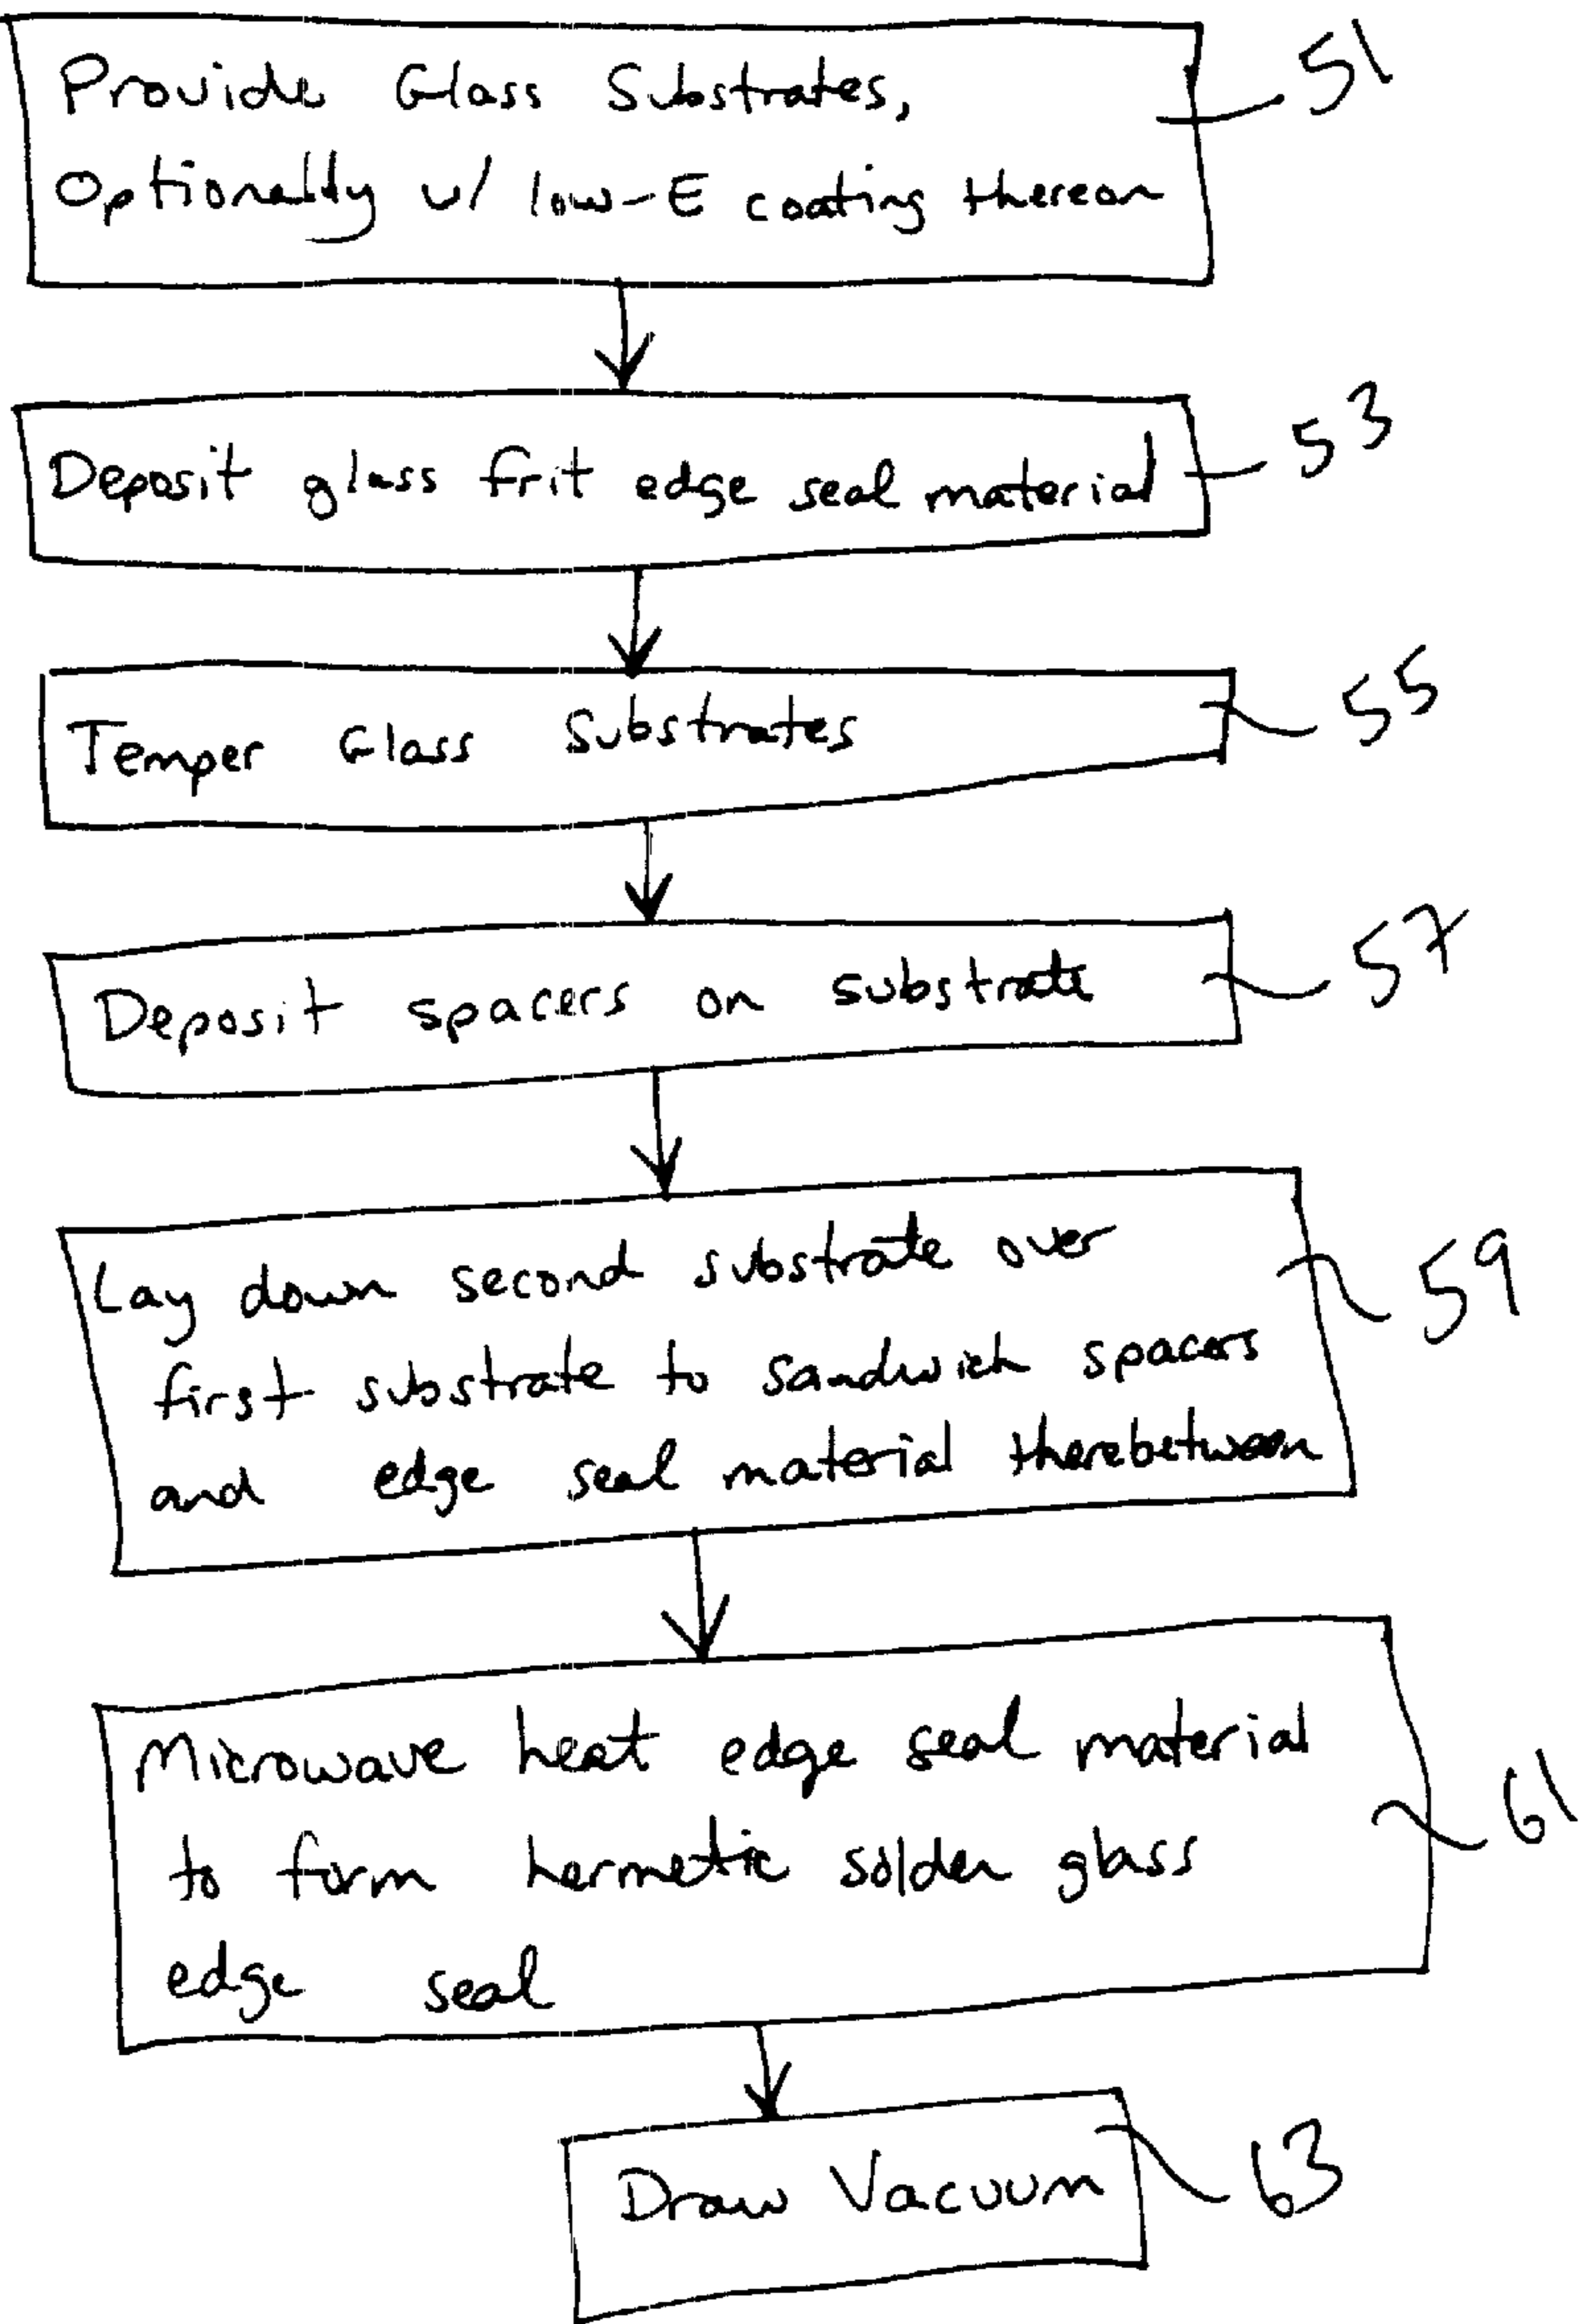 Provide Glass Substrates,
51
Optionally w/ low-E coating thereon
Deposit glass frit edge seal material
53
Temper Glass Substrates
55
Deposit spacers on substrate
57
Lay down second substrate over
59
first substrate to sandwich spacers
and edge seal material therebetween
Microwave heat edge seal material
61
to form hermetic solder glass
edge seal
Draw Vacuum
63